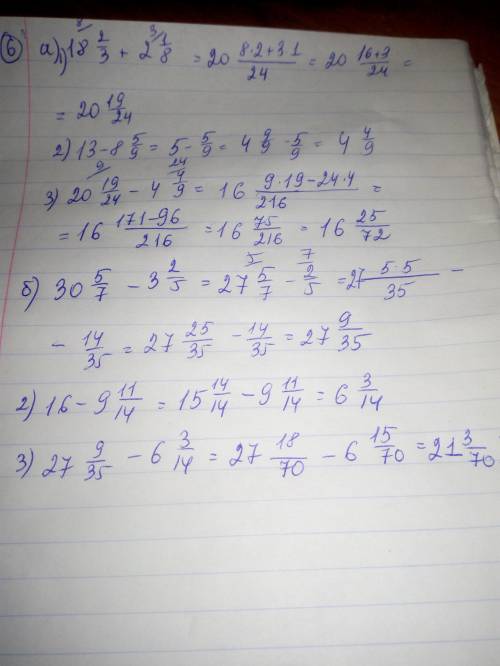 6 а) 1) 18 2/3 + 2 1/8 = 20 8·2+3·1/24 = 20 16+3/24 =
= 20 19/24
2) 13 - 8 5/9 = 5 - 5/9 = 4 9/9 - 5/9 = 4 4/9
3) 20 19/24 - 4 4/9 = 16 9·19-24·4/216 =
= 16 171-96/216 = 16 75/216 = 16 25/72
б) 30 5/7 - 3 2/5 = 27 5/7 - 2/5 = 27 5·5/35 -
- 14/35 = 27 25/35 - 14/35 = 27 9/35
2) 16 - 9 11/14 = 15 14/14 - 9 11/14 = 6 3/14
3) 27 9/35 - 6 3/14 = 27 18/70 - 6 15/70 = 21 3/70